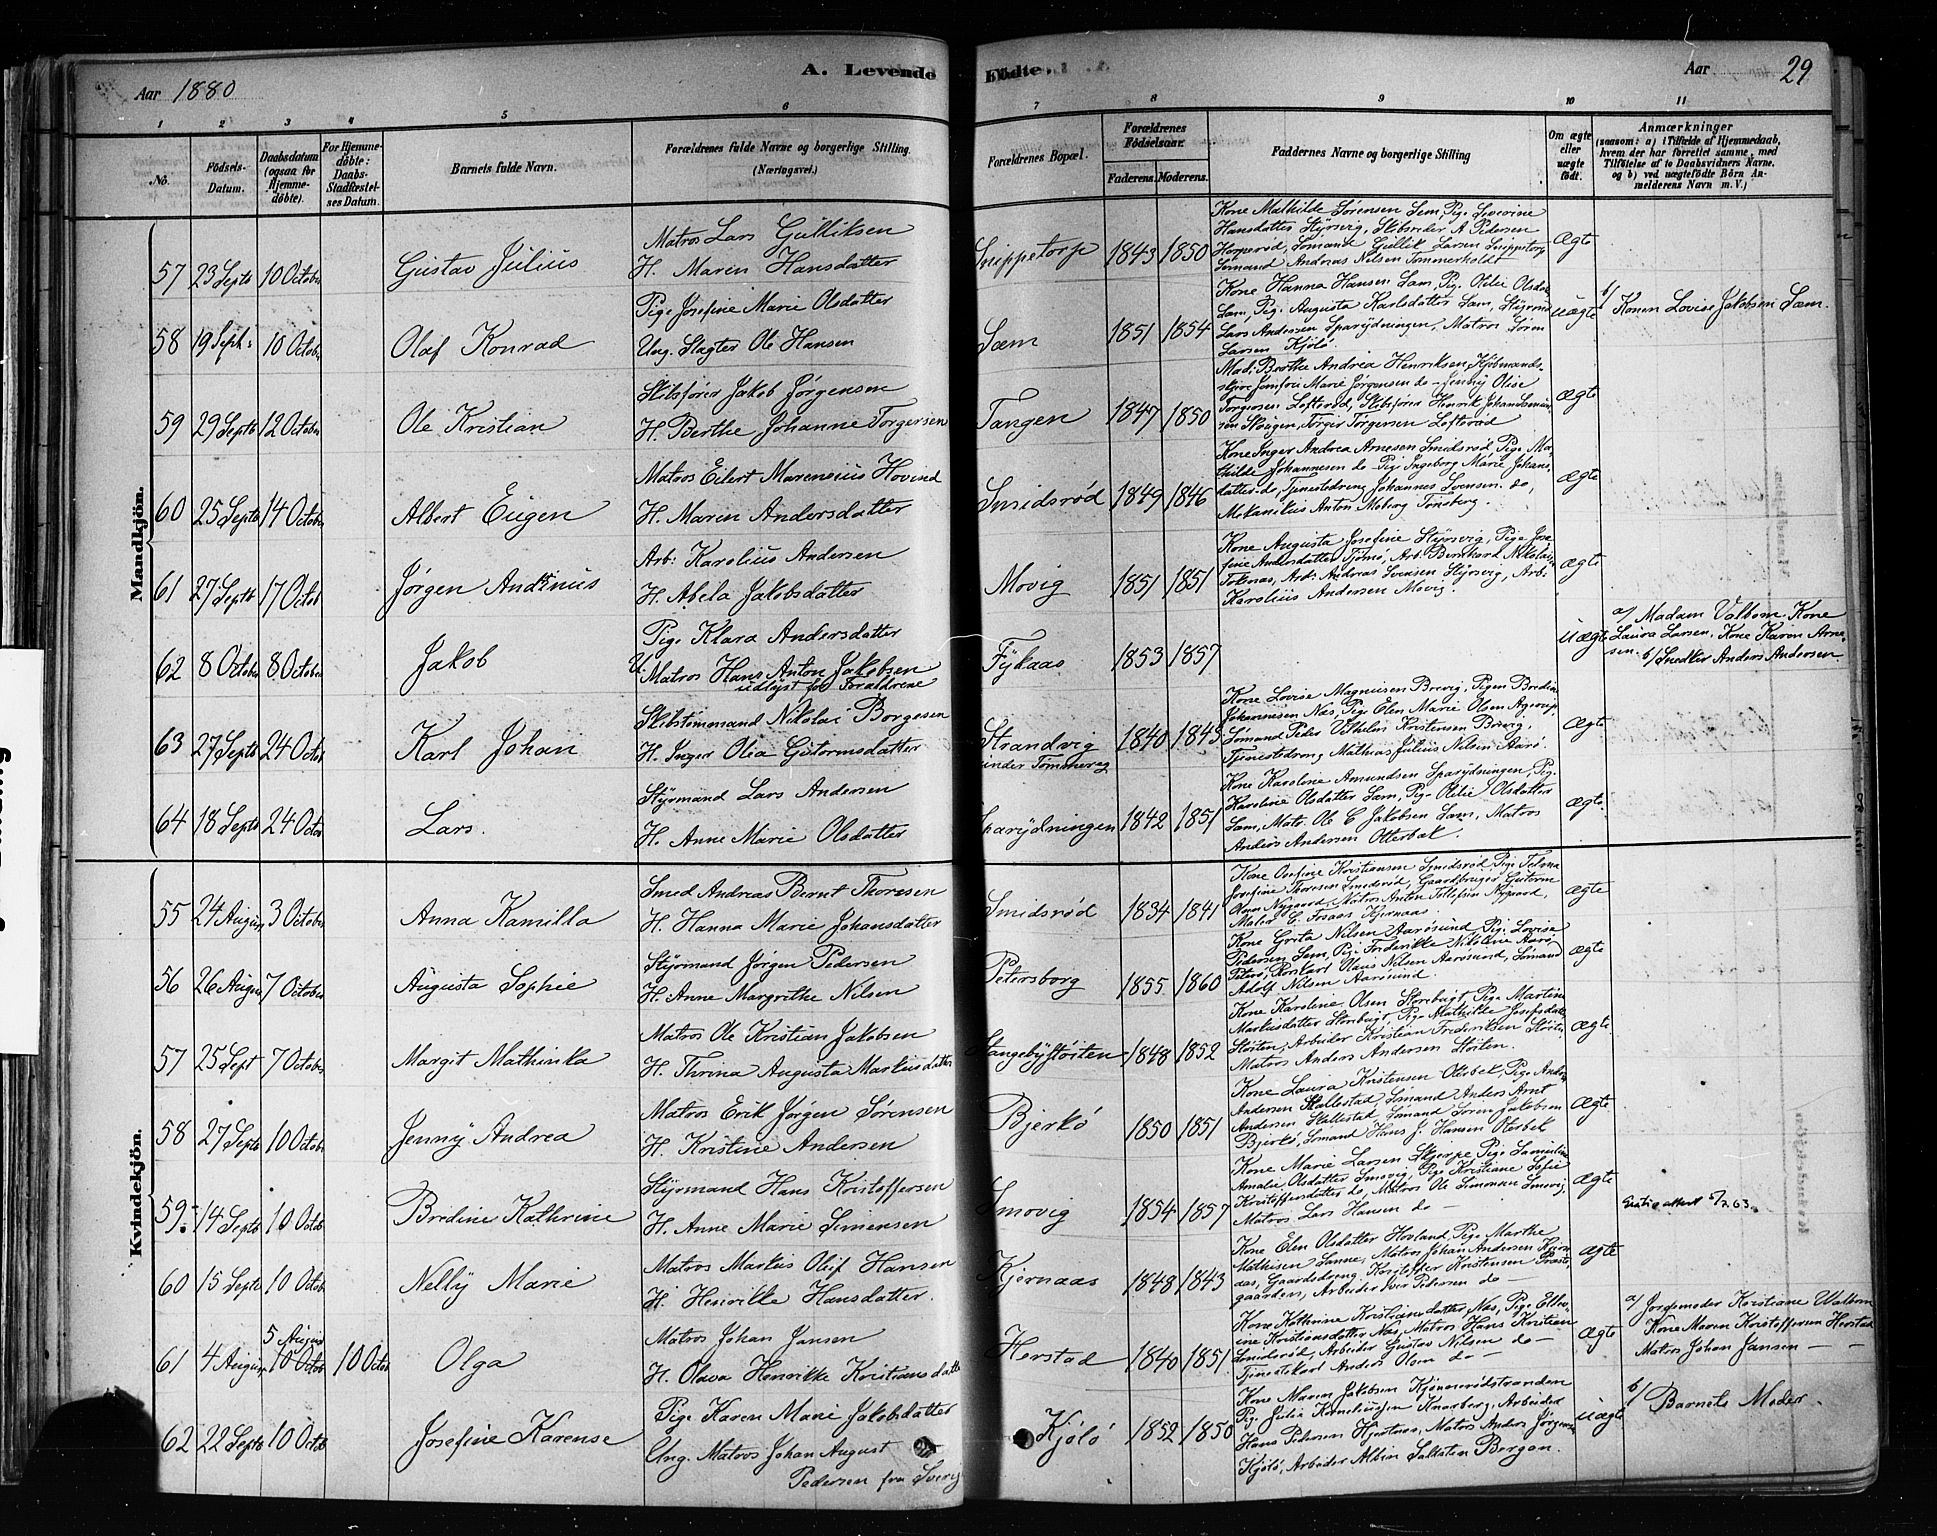 Aar 1880
A. Levende Fødte.
Aar 29
1 2 3 4 5 6 7 8 9 10 11
No.
Fødsels-Datum.
Daabsdatum (ogsaa for Hjemmedøbte).
For Hjemmedøbte: Daabs-Stadfæstelses Datum.
Barnets fulde Navn.
Forældrenes fulde Navne og borgerlige Stilling. (Næringsvei.)
Forældrenes Bopæl.
Forældrenes Fødselsaar.
Faderens. Moderens.
Faddernes Navne og borgerlige Stilling
Om ægte eller uægte født.
Anmærkninger
(saasom: a) i Tilfælde af Hjemmedaab, hvem der har forrettet samme, med Tilføielse af to Daabsvidners Navne, og b) ved uægtefødte Børn Anmelderens Navn m. V.)
Mandkjön.
57 23 Septb 10 Octobr Gustav Julius
Matros Lars Gulliksen
H. Maren Hansdatter
Snippetorp 1843 1850
Kone Mathilde Sørensen Sem, Pige Severine
Hansdatter Styrsvig, Skibsreder A Pedersen
Sømand Gullik Larsen Snippetorp
Sømand Andreas Nilsen Tømmerholdt
Ægte
58 19 Septb: 10 Octobr Olaf Konrad
Pige Josefine Marie Olsdatter
Ung. Slagter Ole Hansen
Sæm 1851 1854
Kone Hanna Hansen Sæm, Pige Olilie Olsdat
Sæm, Pige Augusta Karlsdatter Sæm, Styrmd
Lars Andersen Sparydningen, Matros Søren
Larsen Kjølø
uægte
b/ Konen Lovise Jakobsen Sæm.
59 29 Septb 12 Octobr Ole Kristian
Skibsfører Jakob Jørgensen
H. Berthe Johanne Torgersen
Tangen 1847 1850
Mad. Berthe Andrea Henriksen, Kjøbmands-
Jomfru Marie Jørgensen do - Jenny Olise
Torgersen Lofterød, Skibsfører Henrik Johan
Torger Torgersen Lofterød
ægte
60 25 Septb 14 Octobr Albert Eugen
Matros Eilert Marenius Hovind
H. Maren Andersdatter
Smidsrød 1849 1846
Kone Inger Andrea Arnesen Smidsrød, Pige Ma-
thilde Johannesen do - Pige Ingeborg Marie Johans-
datter do, Tjenestedreng Johannes Svensen do,
Mekanikus Anton Moberg Tønsberg.
ægte
61 27 Septb 17 Octob Jørgen Andinus
Arb: Karolius Andersen
H. Abela Jakobsdatter
Movig 1851 1851
Kone Augusta Josefine Styrsvig, Pige Jose-
fine Andersdatter Tjømø, Arb. Bernhard Nikolai
Toknas, Arb. Andreas Svensen Styrsvig, Arb.
Karolius Andersen Movig.
ægte
62 8 Octobr 8 Octobr Jakob
Pige Klara Andersdatter
U. Matros Hans Anton Jakobsen
udlyst for Forældrene
Fykaas 1853 1857
uægte
a/ Madam Valbom. Kone
Laura Larsen. Kone Karen Arne-
sen. b/ Snedker Anders Andersen
63 27 Septb 24 Octobr Karl Johan
Skibstømmand Nikolai Borgesen
H. Inger Olia Gutormsdatter
Strandvig
under Tømmereg
1840 1845
Kone Lovise Magnusen Brevig, Pigen Bredine
Johannesen Nas, Pige Elen Marie Olsen Agerup,
Sømand Peder Vilhelm Kristensen Brevig,
Tjenestedreng Mathias Julius Nilsen Aarø.
ægte
64 18 Septb 24 Octobr Lars.
Styrmand Lars Andersen
H. Anne Marie Olsdatter
Sparydningen 1842 1851
Kone Karoline Amundsen Sparydningen, Pige
Karoline Olsdatter Sæm, Pige Olilie Olsdatter
Sæm, Matr. Ole C Jakobsen Sæm, Matros
Anders Andersen Otterbæk.
ægte.
Kvindekjön.
55 24 August 3 Octobr Anna Kamilla
Smed Andreas Bernt Thoresen
H. Hanna Marie Johansdatter
Smidsrød 1834 1841
Kone Kristiansen Smidsrød, Pige
Josefine Thoresen Smidsrød, Gaardbruger Gutorm
Olsen Nygaard, Matros Anton Tollefsen Nygaard,
Kjernaas
ægte
56 26 August 7 Octobr Augusta Sophie
Styrmand Jørgen Pedersen
H. Anne Margrethe Nilsen
Petersborg 1855 1860
Kone Grita Nilsen Aarøsund, Pige Lovise
Pedersen Sem, Pige Frederikke Nikoline Aarø
Olaus Nilsen Aarøsund, Sømand
Adolf Nilsen Aarøsund.
ægte
57 25 Sept 7 Octobr Margit Mathinka
Matros Ole Kristian Jakobsen
H. Thrina Augusta Markusdatter
Stangebystøiten 1848 1852
Kone Karoline Olsen Storebugt, Pige Martine
Markusdatter Storebugt, Pige Mathilde Josefsdatt
Støiten, Arbeider Kristian Frederiksen Støiten
Matros Anders Andersen Støiten.
ægte.
58 27 Septb 10 Octobr Jenny Andrea
Matros Erik Jørgen Sørensen
H. Kristine Andersen
Bjerkø 1850 1851
Kone Laura Kristensen Oterbek, Pige
Andersen Skallestad, Sømand Anders Arnt
Andersen Skallestad, Sømand Søren Jakobsen
Bjerkø, Sømand Hans J. Hansen Oterbek
ægte
59 14 Septb 10 Octob Bredine Kathrine
Styrmand Hans Kristoffersen
H. Anne Marie Simensen
Smovig 1854 1857
Kone Marie Larsen Skjerpe, Pige
Amalie Olsdatter Smovig, Pige Kristiane Sofie
Kristoffersdatter do, Matros Ole Simonsen Smovig,
Matros Lars Hansen do -
ægte
Gratisattest 5/2 63.
60 15 Septb 10 Octob Nelly Marie
Matros Markus Oluf Hansen
H. Henrikke Hansdatter.
Kjernaas 1848 1843
Kone Elen Olsdatter Hovland, Pige Marthe
Mathisen Sanne, Matros Johan Andersen Kjern-
aas, Gaardedreng Kristoffer Kristensen Præste-
gaarden, Arbeider Iver Pedersen do -
ægte
61 4 August 5 August 10 Octob 10 Octob Olga
Matros Johan Jansen
H. Olava Henrikke Kristiansdatter
Herstad 1840 1851
Kone Kathrine Kristiansdatter Nas, Pige Elle-
ine Kristiansdatter Nas, Matros Hans Kristian
Smidsrød, Arbeider Gustav Nilsen do -
Tjenestekarl Anders Olsen do -
ægte
a/ Jordemoder Kristiane Walbom
Kone Maren Kristoffersen Herstad
Matros Johan Jansen - -
62 22 Septb 10 Octob Josefine Karense
Pige Karen Marie Jakobsdatter
Ung. Matros Johan August
Pedersen fra Sverg
Kjølø 1852 1850
Kone Maren Jakobsen Kjønnerødstranden
Pige Julia Korneliusen Knarberg, Arbeider
Hans Pedersen Hjertnes, Matros Anders Jørgensen
Kjølø, Arbeider Albin Bergan.
uægte
b/ Barnets Moder.